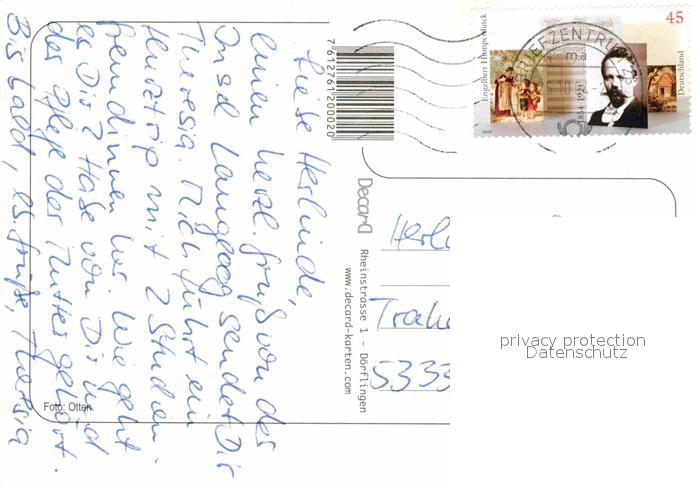 Liebe Herlinde,
einen herzl. Gruß von der
Insel Langeoog sendet Dir
Theresia. Mich führt ein
Kurztrip mit 2 Studien-
freundinnen her. Wie geht
es Dir? Habe von Dir und
der Pflege der Mutter gehört.
Bis bald, es grüßt, Theresia
Foto: Otten
7612761200020
Decard Rheinstrasse 1 - Dörflingen
www.decard-karten.com
Engelbert Humperdinck
45
Deutschland
1854-1921
BRIEFZENTRUM
Herl
5333
privacy protection
Datenschutz